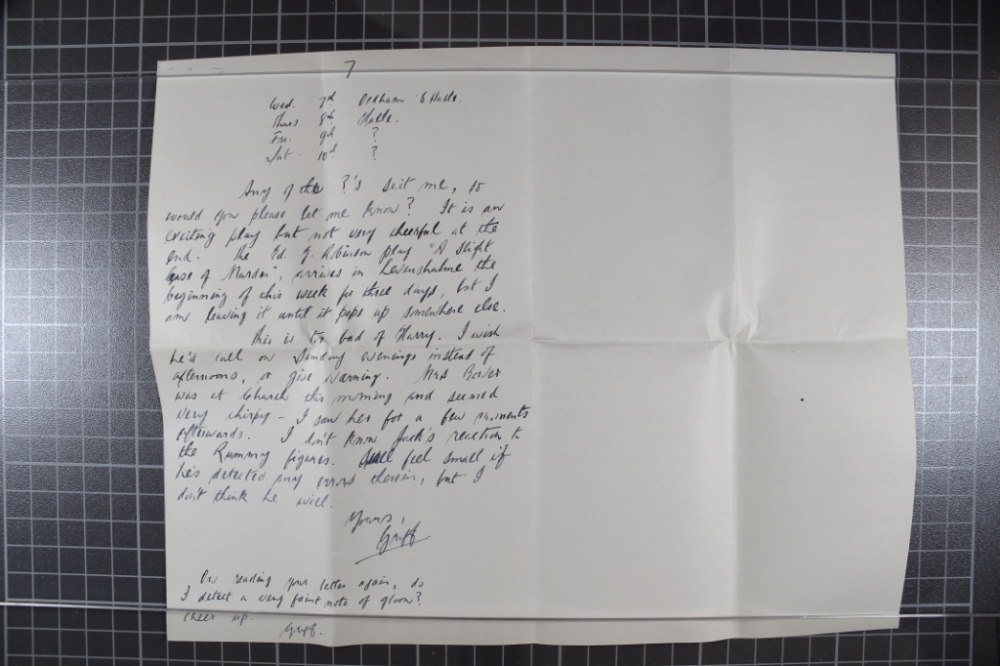 7
Wed. 7th Oldham & Halle.
Thurs 8th Halle.
Fri. 9th ?
Sat. 10th ?
Any of the ?'s suit me, so
would you please let me know? It is an
exciting play but not very cheerful at the
end. The Ed. G. Robinson play "A Slight
Case of Murder", arrives in Levenshulme the
beginning of this week for three days, but I
am leaving it until it pops up somewhere else.
This is too bad of Harry. I wish
he'd call on Sunday evenings instead of
afternoons, or give warning. Mrs
was at Church this morning and seemed
very chirpy - I saw her for a few moments
afterwards. I don't know Jack's reaction to
the Rummy figures. feel small if
he's detected any errors therein, but I
don't think he will.
Yours,
Griff
On reading your letter again, do
I detect a very faint note of gloom?
Cheer up.
Griff.